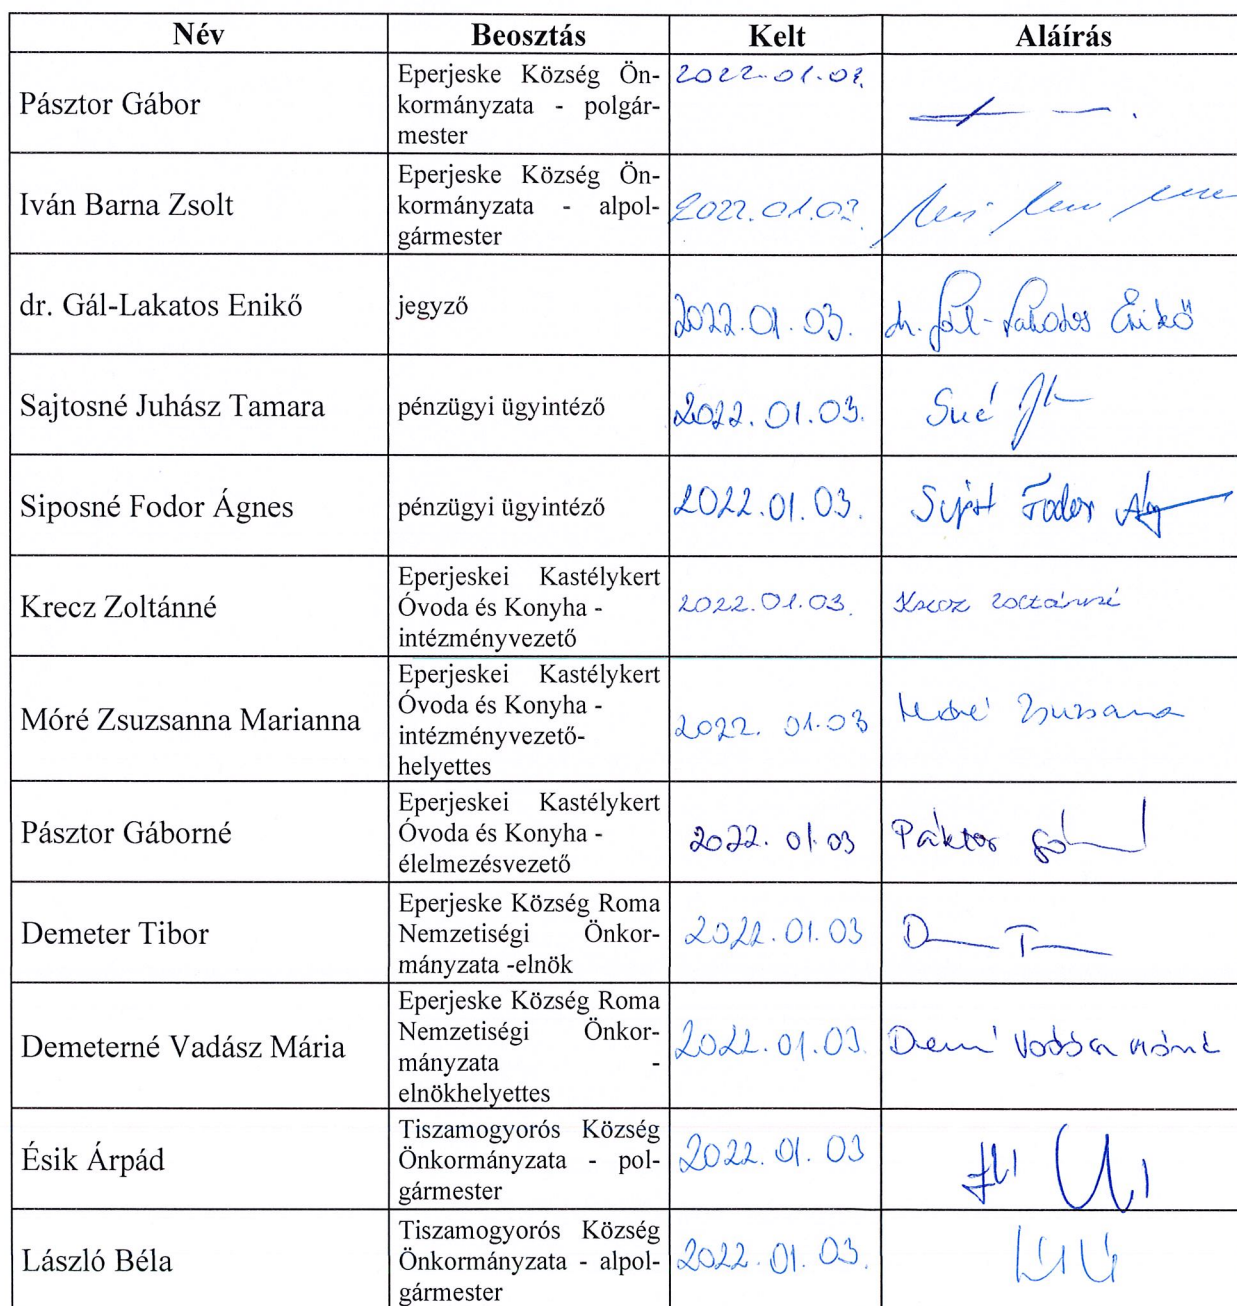 Név Beosztás Kelt Aláírás
Pásztor Gábor
Eperjeske Község Ön-
kormányzata - polgár-
mester
2022.01.03.
Iván Barna Zsolt
Eperjeske Község Ön-
kormányzata - alpol-
gármester
2022.01.03.
dr. Gál-Lakatos Enikő
jegyző
2022.01.03.
dr. Gál-Lakatos Enikő
Sajtosné Juhász Tamara
pénzügyi ügyintéző
2022.01.03.
Siposné Fodor Ágnes
pénzügyi ügyintéző
2022.01.03.
Fodor
Krecz Zoltánné
Eperjeskei Kastélykert
Óvoda és Konyha -
intézményvezető
2022.01.03.
Krecz Zoltánné
Móré Zsuzsanna Marianna
Eperjeskei Kastélykert
Óvoda és Konyha -
intézményvezető-
helyettes
2022. 01.03
Móré Zsuzsanna
Pásztor Gáborné
Eperjeskei Kastélykert
Óvoda és Konyha -
élelmezésvezető
2022. 01 03
Pásztor
Demeter Tibor
Eperjeske Község Roma
Nemzetiségi Önkor-
mányzata -elnök
2022.01.03
Demeterné Vadász Mária
Eperjeske Község Roma
Nemzetiségi Önkor-
mányzata -
elnökhelyettes
2022.01.03.
Vadász Mária
Ésik Árpád
Tiszamogyorós Község
Önkormányzata - pol-
gármester
2022.01.03
László Béla
Tiszamogyorós Község
Önkormányzata - alpol-
gármester
2022.01.03.